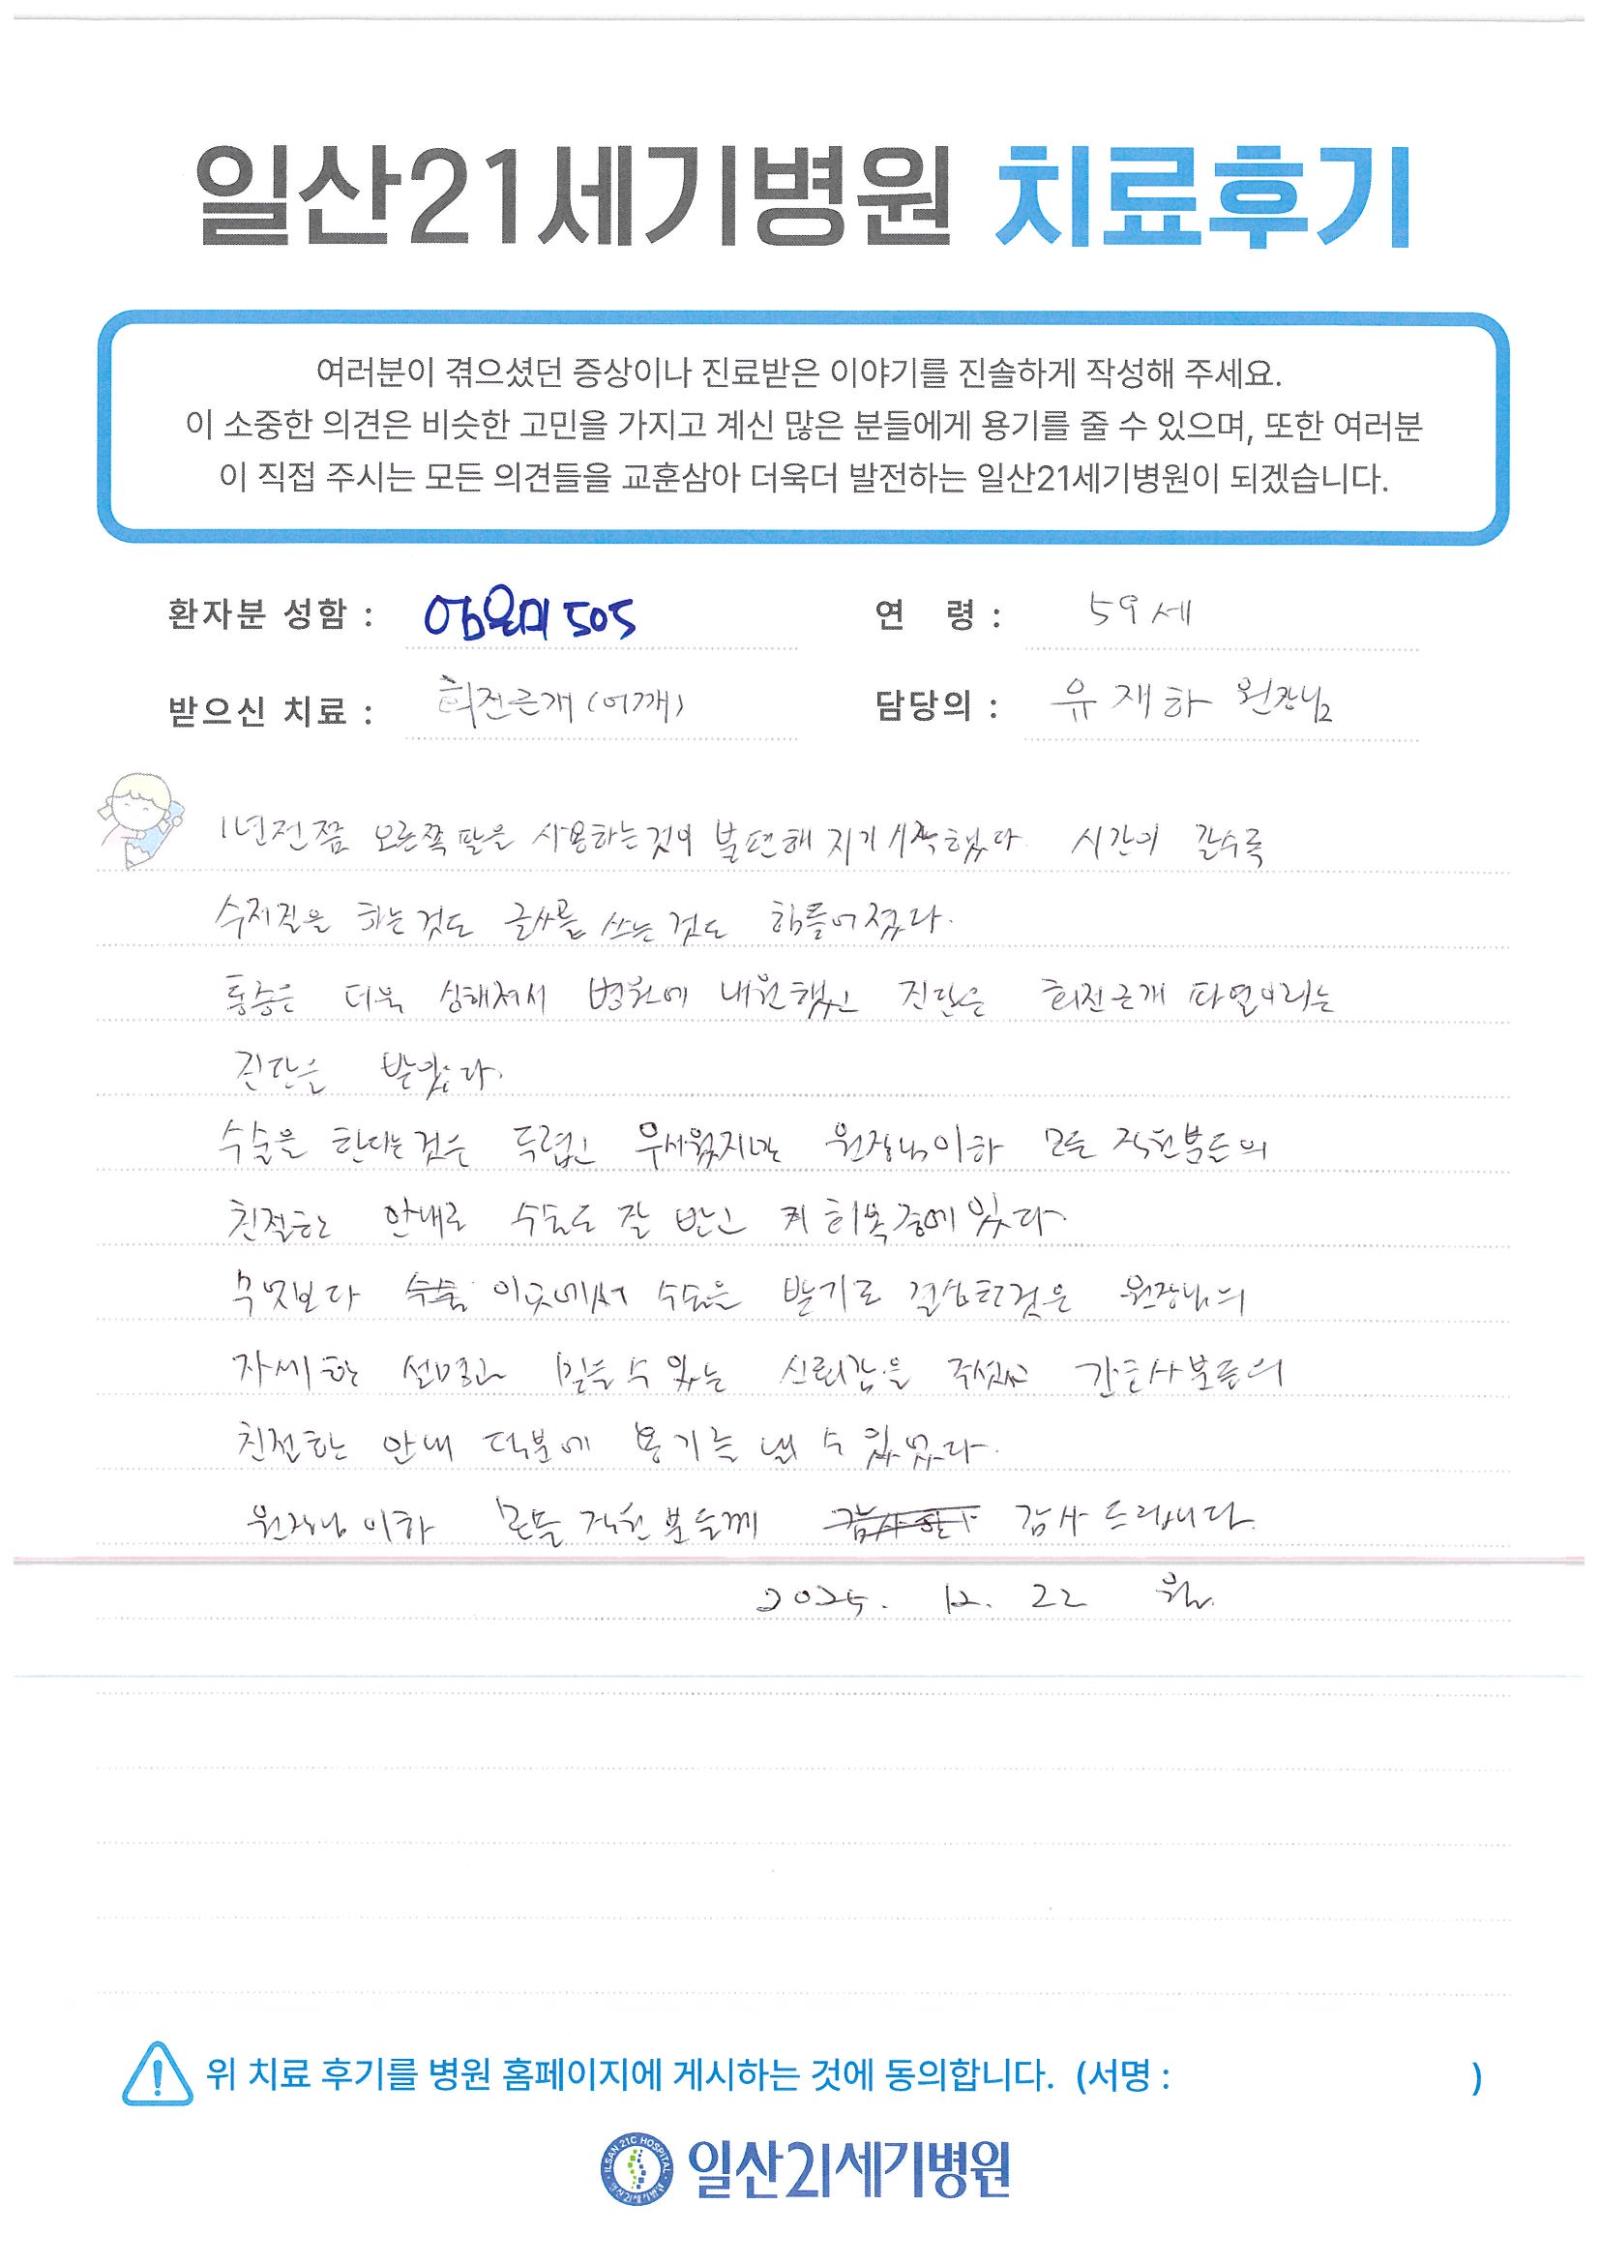 일산21세기병원 치료후기
여러분이 겪으셨던 증상이나 진료받은 이야기를 진솔하게 작성해 주세요.
이 소중한 의견은 비슷한 고민을 가지고 계신 많은 분들에게 용기를 줄 수 있으며, 또한 여러분
이 직접 주시는 모든 의견들을 교훈삼아 더욱더 발전하는 일산21세기병원이 되겠습니다.
환자분 성함 : 505 연 령 : 59세
받으신 치료 : 회전근개 (어깨) 담당의 : 유재하 원장님
1년전쯤 오른쪽 팔을 사용하는것이 불편해 지기 시작했다. 시간이 갈수록
수저질을 하는것도 글씨를 쓰는 것도 힘들어졌다.
통증은 더욱 심해져서 병원에 내원했고 진단은 회전근개 파열이라는
진단을 받았다.
수술을 한다는것은 두렵고 무서웠지만 원장님이하 모든 직원분들의
친절한 안내로 수술도 잘 받고 회복중에 있다.
무엇보다 수술 이곳에서 수술을 받기로 결심한것은 원장님의
자세한 설명과 믿을 수 있는 신뢰감을 주셨고 간호사분들의
친절한 안내 덕분에 용기를 낼 수 있었다.
원장님 이하 모든 직원분들께 감사한다 감사드립니다.
2025. 12. 22 월.
위 치료 후기를 병원 홈페이지에 게시하는 것에 동의합니다. (서명 : )
ILSAN 21C HOSPITAL
일산21세기병원
일산21세기병원